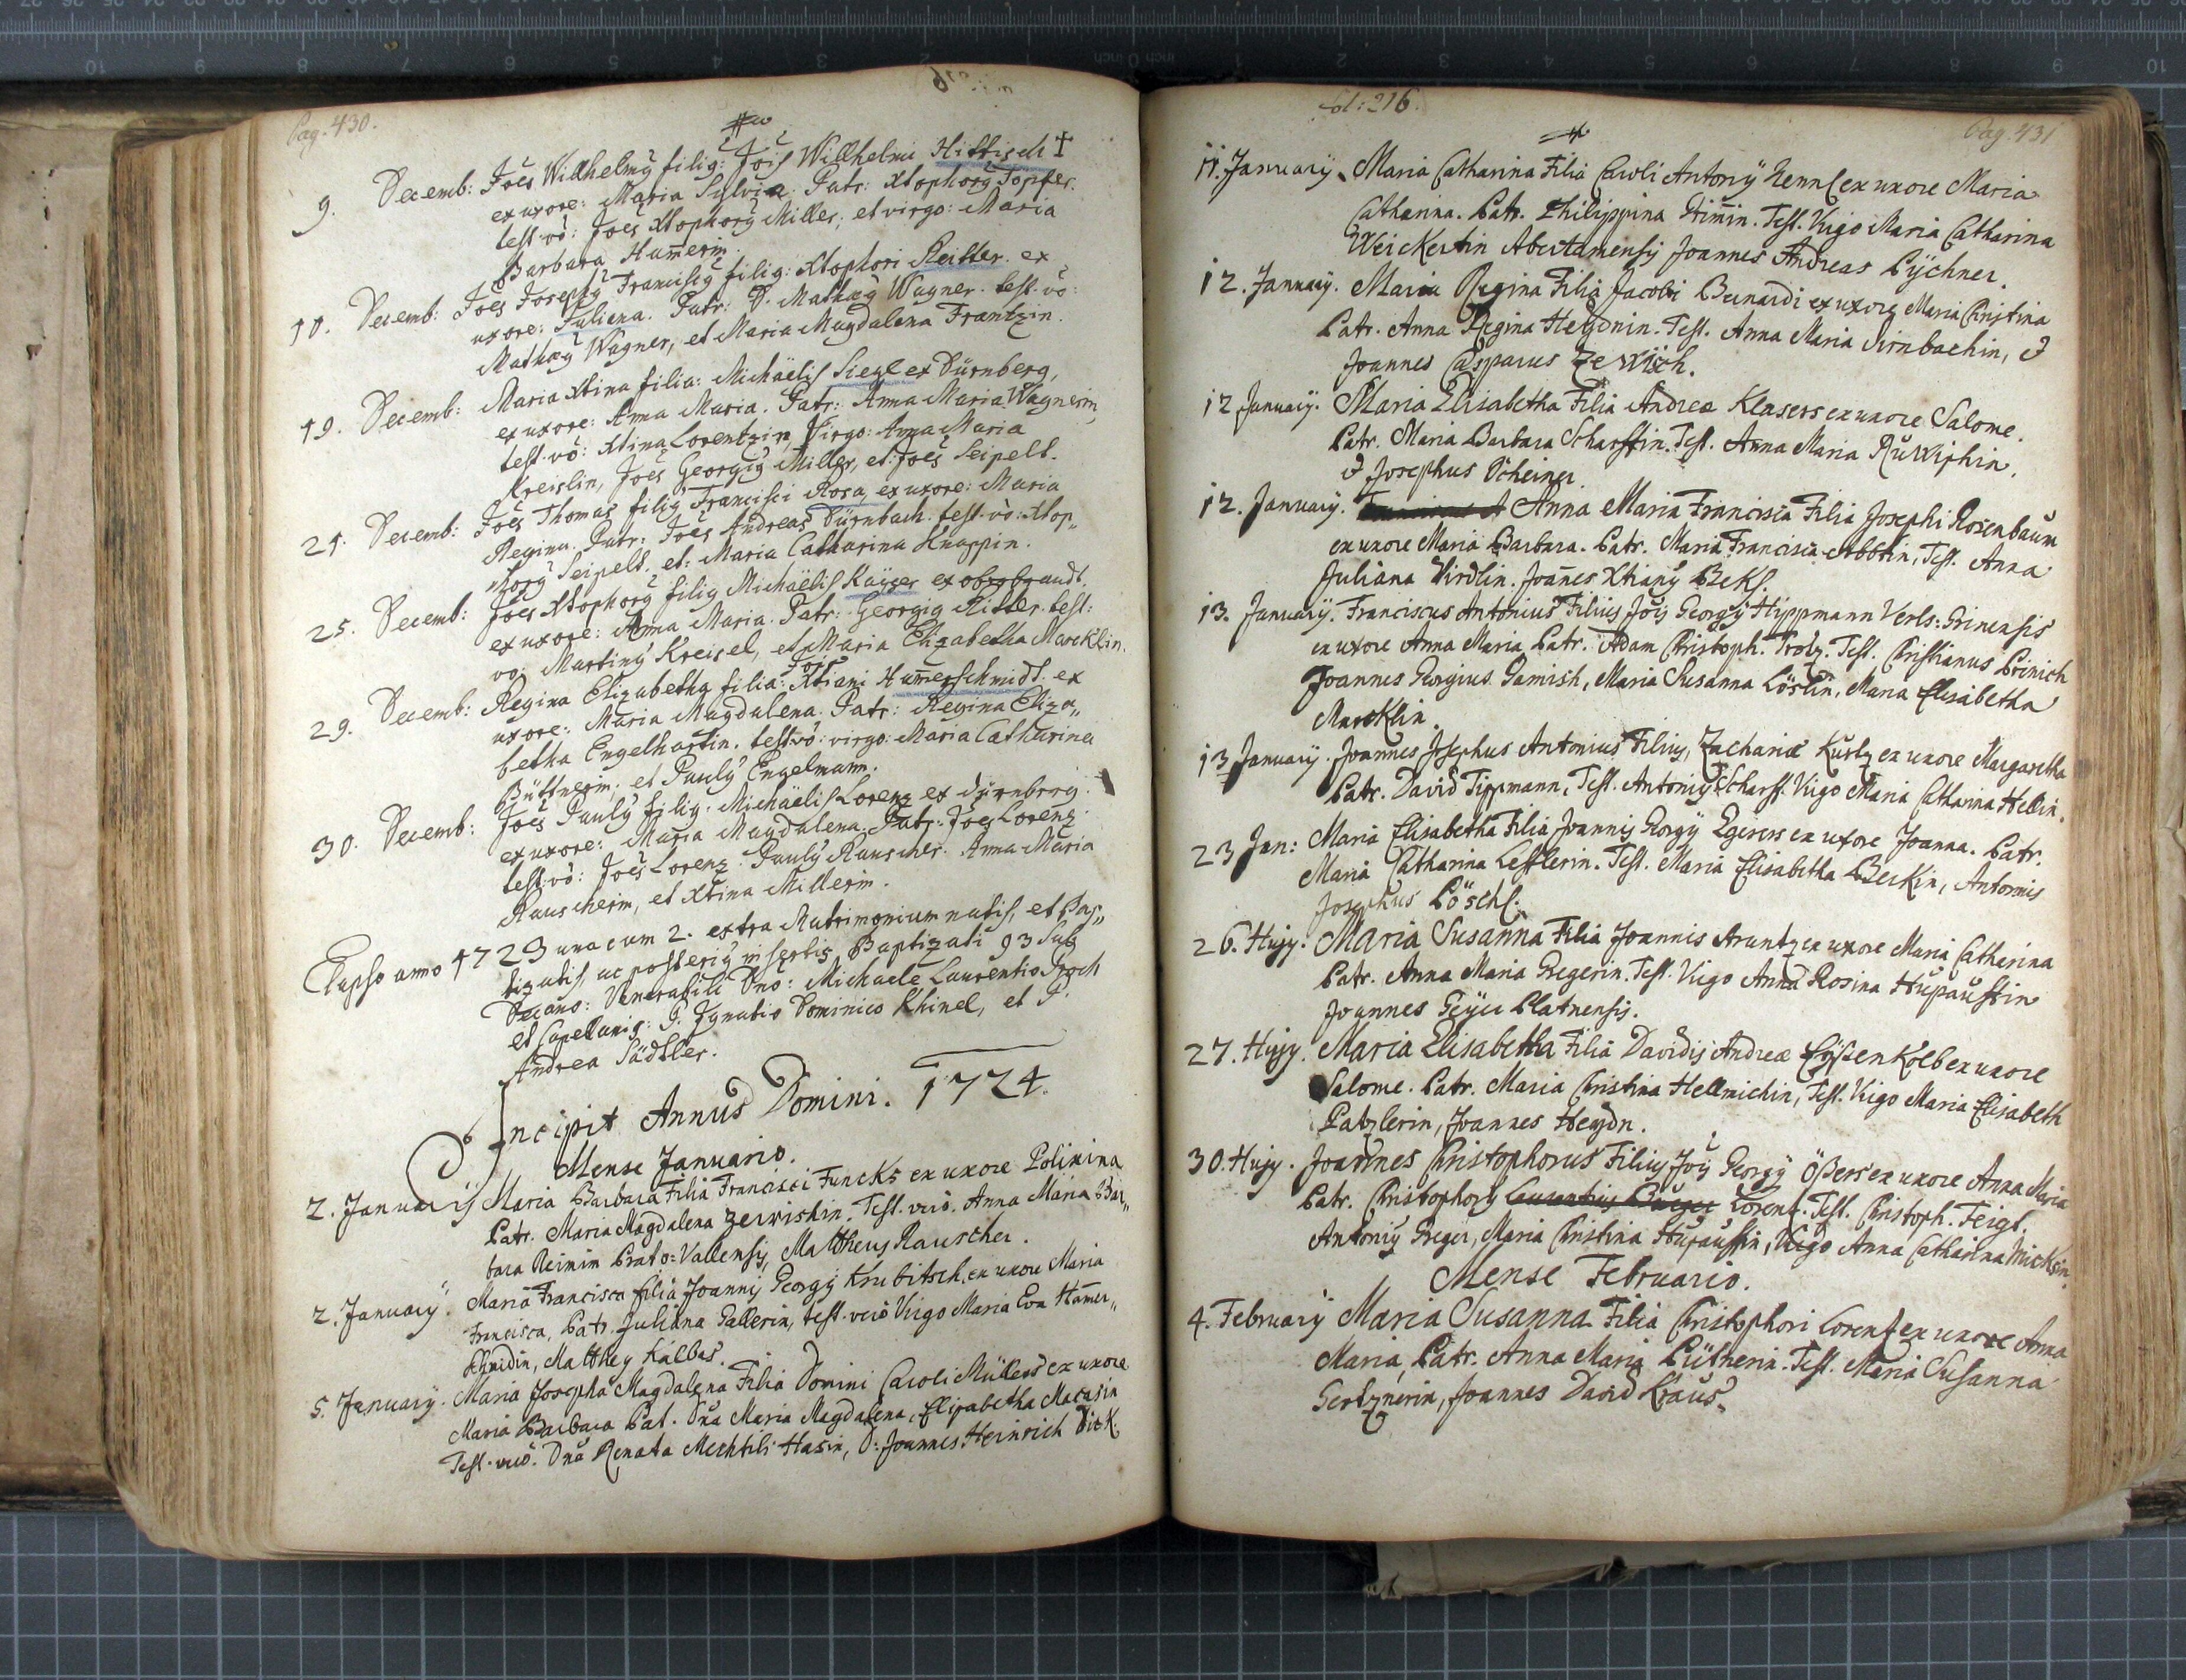 Pag. 430.
9. Decemb: Joẽs Wilhelmꝯ filiꝯ: Jois Willhelmi Hittisch †
ex uxore: Maria Sylvia. Patr: Xtophorꝯ Topfer.
test. vò: Joẽs Xtophorꝯ Miller, et virgo: Maria
Barbara Hum̃erin.
10. Decemb: Joẽs Josephꝯ Franciscꝯ filiꝯ: Xtophori Reitter. ex
uxore: Juliana. Patr: D. Mathæꝯ Wagner. test. vò:
Mathæꝯ Wagner, et Maria Magdalena Frantzin.
19. Decemb: Maria Xtina filia: Michäelis Siegl ex Dürnberg,
ex uxore: Anna Maria. Patr: Anna Maria Wagnerin,
test. vò: Xtina Lorentzin, Virgo: Anna Maria
Kreislin, Joẽs Georgiꝯ Miller, et Joẽs Seipelt.
21. Decemb: Joẽs Thomas filiꝯ Francisci Rosa, ex uxore: Maria
Regina. Patr: Joẽs Andreas Dürnbach. test. vò: Xtop„
horꝯ Seipelt. et: Maria Catharina Knappin.
25. Decemb: Joẽs Xtophorꝯ filiꝯ Michäelis Kaÿser ex obrobrandt.
ex uxore: Anna Maria. Patr: Georgiꝯ Ritter. test:
vò: Martinꝯ Kreisel, et Maria Elizabetha Marcklin.
29. Decemb: Regina Elizabetha filia: Jois Xtiani Hum̃erschmidt. ex
uxore: Maria Magdalena. Patr: Regina Eliza„
betha Engelhartin. test. vò: virgo: Maria Catharina
Büttnerin; et Paulꝯ Engelmann.
30. Decemb: Joẽs Paulꝯ filiꝯ: Michäelis Lorenz ex dürnberg.
ex uxore: Maria Magdalena. Patr: Joẽs Lorenz.
test. vò: Joẽs Lorenz. Paulꝯ Rauscher. Anna Maria
Rauscherin, et Xtina Millerin.
Elapso anno 1723 una cum 2. extra Matrimonium natis, et Bap„
tizatis, ac posteriꝯ insertis Baptizati 93 Sub
Decano: Venerabili Dño: Michaele Laurentio Proch
et Capellanis: P. Ignatio Dominico Khinel, et P.
Andrea Sädtler.
Incipit Annus Domini. 1724.
Mense Januario.
2. Januarij Maria Barbara Filia Francisci Funcks ex uxore Polixina
Patr. Maria Magdalena Zewishin. Test. verò. Anna Maria Bar„
bara Reimin Prato=Vallensis, Mattheus Rauscher.
2. Januarÿ. Maria Francisca filia Joannis Georgÿ Krubitsch, ex uxore Maria
Francisca, Patr. Juliana Gallerin, test. verò Virgo Maria Eva Ham̃er„
schmidin, Matthey Kalbas.
5. Januarÿ. Maria Josepha Magdalena Filia Domini Caroli Müllers ex uxore
Maria Barbara Pat. Dña Maria Magdalena, Elisabetha Macasin
Test. verò. Dña Renata Mechtili Hasin, D: Joannes Heinrich Dick
fol: 216.
Pag. 431
11. Januarÿ. Maria Catharina Filia Caroli Antonÿ Hennl ex uxore Maria
Catharina. Patr. Philippina Him̃in. Test. Virgo Maria Catharina
Weickertin Abertamensis Joannes Andreas Pÿchner.
12. Januarÿ. Maria Regina Filia Jacobi Bernardi ex uxore Maria Christina
Patr. Anna Regina Heydnin. Test. Anna Maria Dirnbachin, &
Joannes Casparus Zewisch.
12 Januarÿ. Maria Elisabetha Filia Andreæ Klasers ex uxore Salome.
Patr. Maria Barbara Scharffin. Test. Anna Maria Ruwishin.
& Josephus Scheiner.
12. Januarÿ. Anna Maria Francisca Filia Josephi Rosenbaum
ex uxore Maria Barbara. Patr. Maria Francisca Abbtin, Test. Anna
Juliana Virdlin. Joan̄es Xtianꝯ Beckl.
13. Januarÿ. Franciscus Antonius Filius Jois Georgÿ Hippmann Verls=Grinensis
ex uxore Anna Maria Patr. Adam Christoph. Trotz. Test. Christianus Prinich
Joannes Georgius Gamish, Maria Susanna Löslin, Maria Elisabetha
Marcklin.
13 Januarÿ. Joannes Josephus Antonius Filius, Zachariæ Kurtz ex uxore Margaretha
Patr. David Tippmann, Test. Antoniꝯ Scharff. Virgo Maria Catharina Hellin.
23 Jan: Maria Elisabetha Filia Joannis Georgÿ Egerers ex uxore Joanna. Patr.
Maria Catharina Lesslerin. Test. Maria Elisabetha Beckin, Antonius
Josephus Pöschl.
26. Hujꝯ. Maria Susanna Filia Joannis Arantz ex uxore Maria Catharina
Patr. Anna Maria Gregerin. Test. Virgo Anna Rosina Hupauffin
Joannes Geÿer Platnensis.
27. Hujꝯ. Maria Elisabetha Filia Davidis Andreæ Eysenkolb ex uxore
Salome. Patr. Maria Christina Hellmichin, Test. Virgo Maria Elisabeth
Patzlerin, Joannes Heydn.
30. Hujꝯ. Joannes Christophorus Filius Jois Georgÿ Ößers ex uxore Anna Maria
Patr. Christophorꝯ Lorentz. Test. Christoph. Feigl.
Antoniꝯ Greger, Maria Christina Hupauffin, Virgo Anna Catharina Micksin.
Mense Februario.
4. Februarÿ Maria Susanna Filia Christophori Lorentz ex uxore Anna
Maria, Patr. Anna Maria Lütherin. Test. Maria Susanna
Gertznerin, Joannes David Kraus.